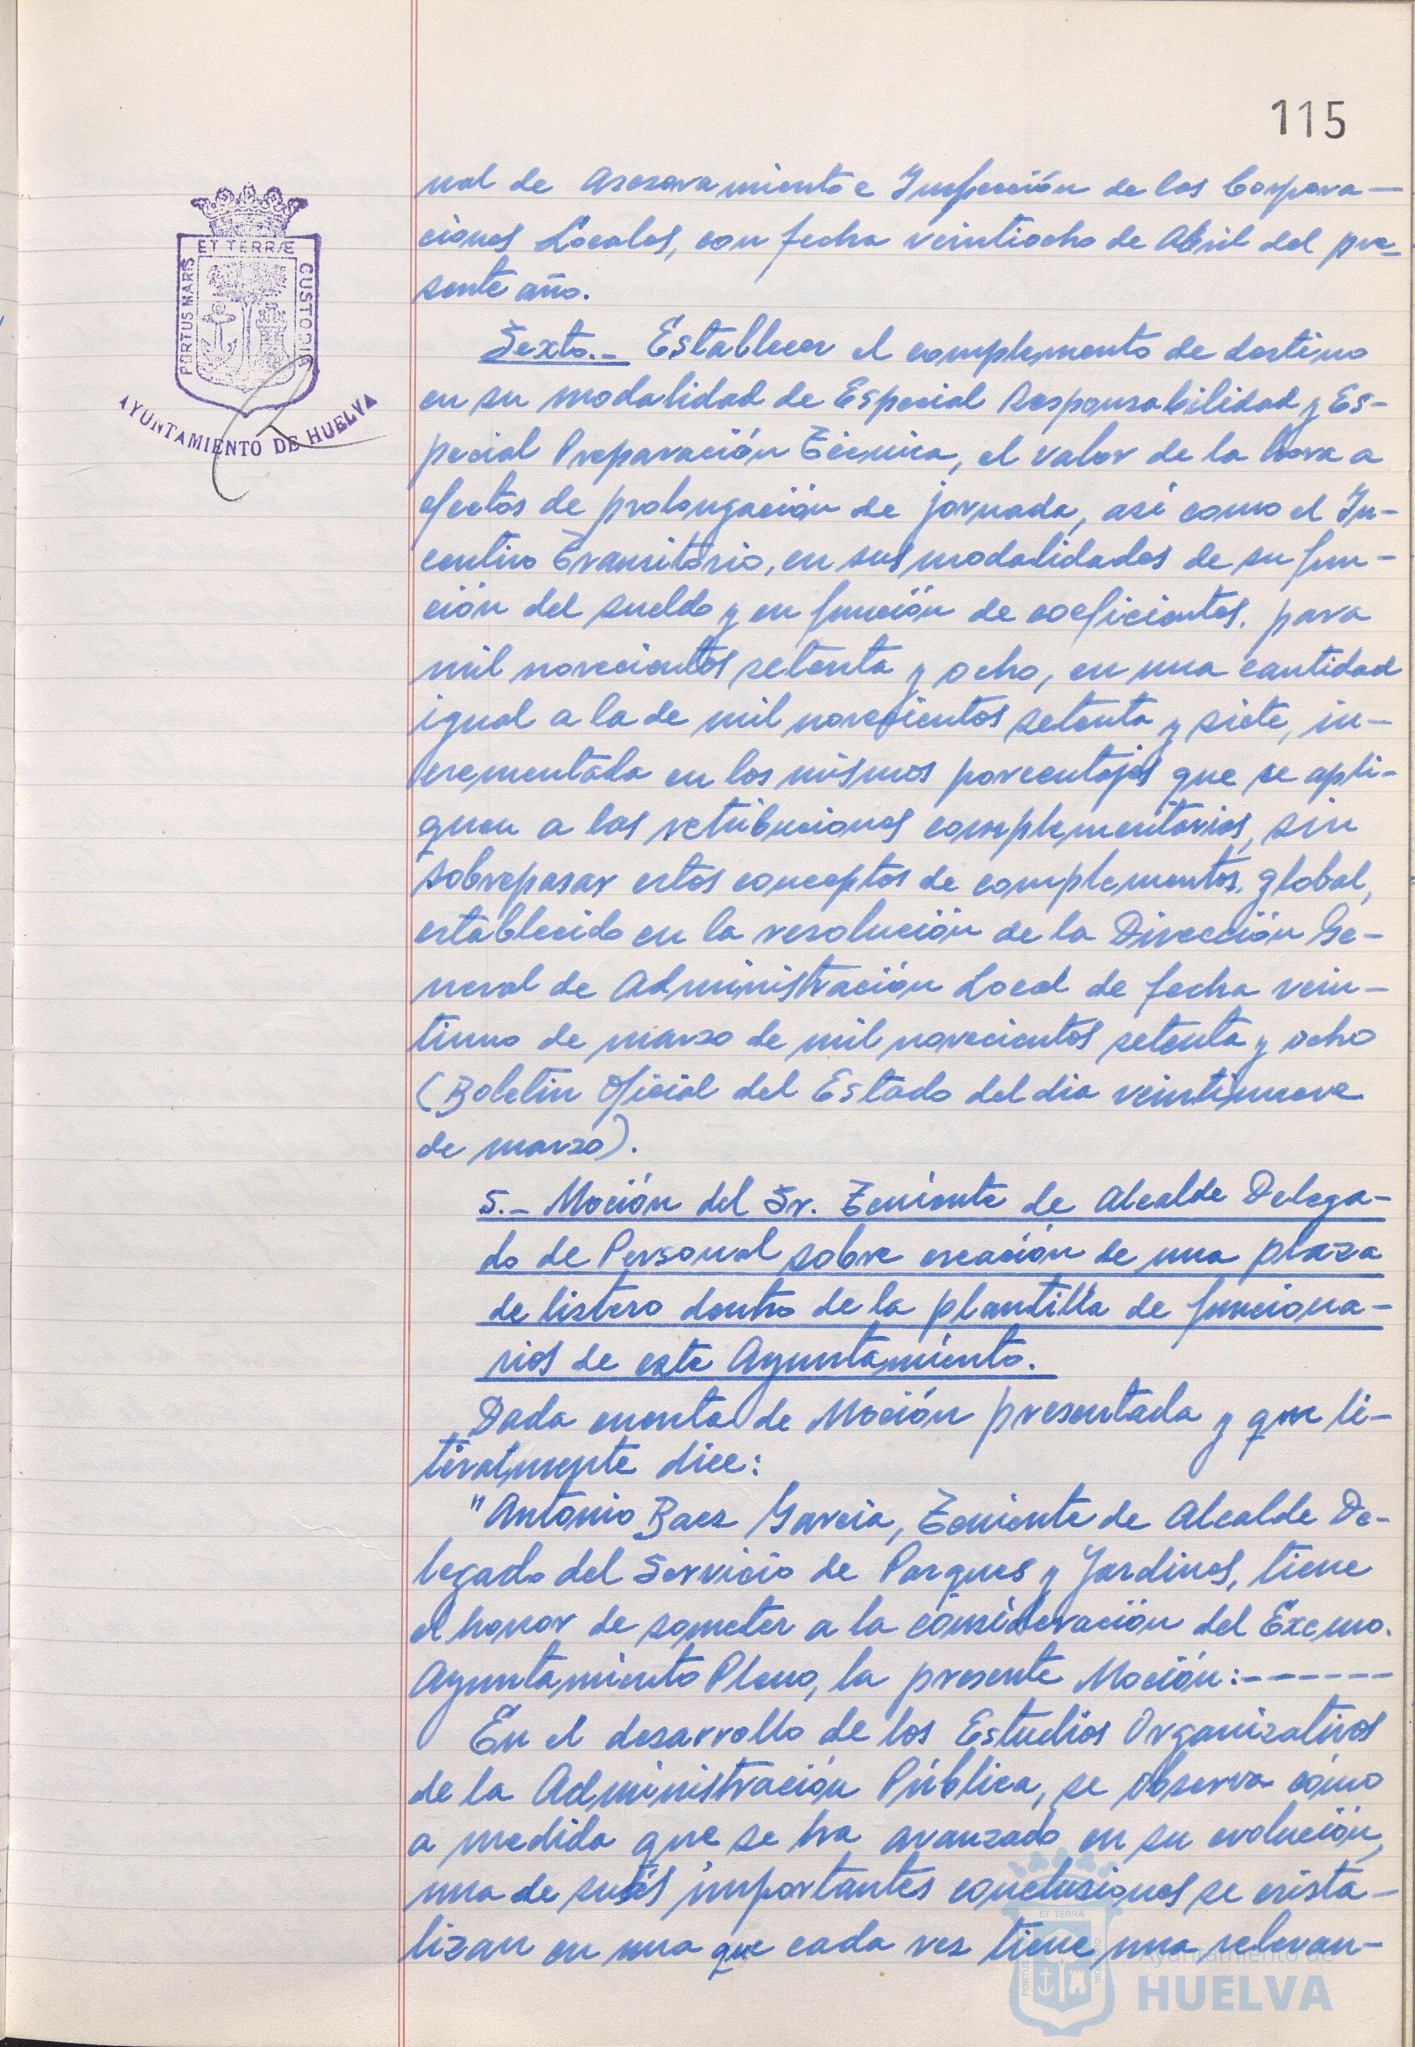 115
ET TERRÆ
PORTUS MARIS
CUSTODIA
AYUNTAMIENTO DE HUELVA
nal de Asesoramiento e Inspección de las Corpora-
ciones Locales, con fecha veintiocho de Abril del pre-
sente año.
Sexto.- Establecer el complemento de destino
en su modalidad de Especial Responsabilidad y Es-
pecial Preparación Técnica, el valor de la hora a
efectos de prolongación de jornada, así como el In-
centivo Transitorio, en sus modalidades de su fun-
ción del sueldo y en función de coeficientes, para
mil novecientos setenta y ocho, en una cantidad
igual a la de mil novecientos setenta y siete, in-
crementada en los mismos porcentajes que se apli-
quen a las retribuciones complementarias, sin
sobrepasar estos conceptos de complementos, global,
establecido en la resolución de la Dirección Ge-
neral de Administración Local de fecha vein-
tiuno de marzo de mil novecientos setenta y ocho
(Boletin Oficial del Estado del dia veintinueve
de marzo).
5.- Moción del Sr. Teniente de Alcalde Delega-
do de Personal sobre creación de una plaza
de listero dentro de la plantilla de funciona-
rios de este Ayuntamiento.
Dada cuenta de Moción presentada y que li-
teralmente dice:
"Antonio Baez Garcia, Teniente de Alcalde De-
legado del Servicio de Parques y Jardines, tiene
el honor de someter a la consideración del Excmo.
Ayuntamiento Pleno, la presente Moción:------
En el desarrollo de los Estudios Organizativos
de la Administración Pública, se observa cómo
a medida que se ha avanzado en su evolución,
una de sus importantes conclusiones se crista-
lizan en una que cada vez tiene una relevan-
Ayuntamiento de
HUELVA